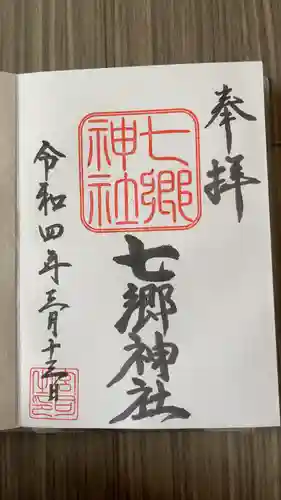 奉拝
七郷
神社
七郷神社
令和四年三月十三日